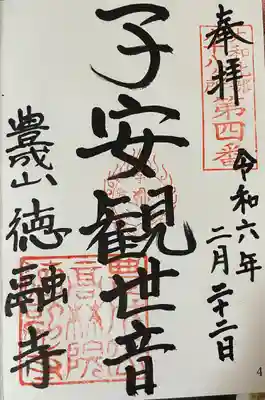 奉拝
第四番
令和六年
二月二十二日
子安観世音
豊成山徳融寺
4